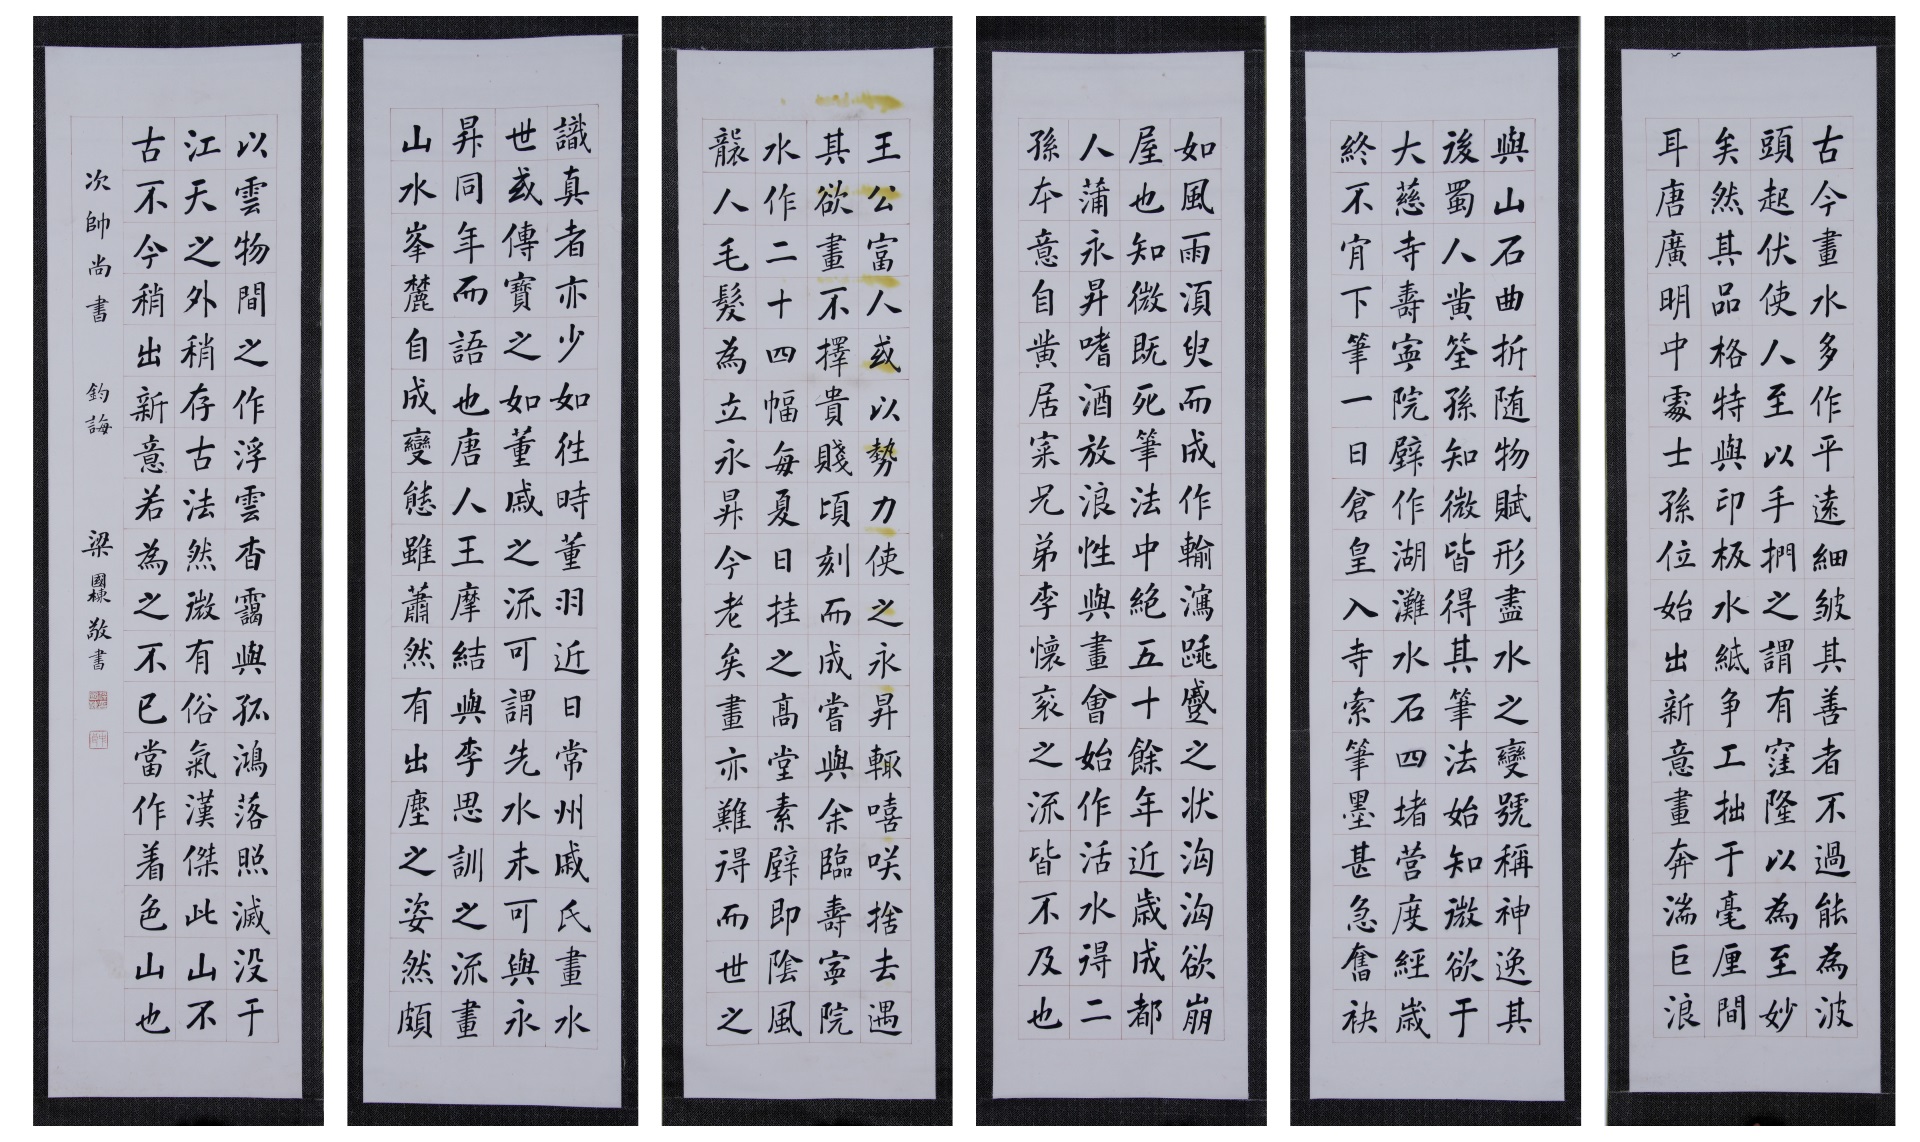 古今畫水多作平遠細皴其善者不過能為波
頭起伏使人至以手捫之謂有窪隆以為至妙
矣然其品格特與印板水紙争工拙于毫厘間
耳唐廣明中處士孫位始出新意畫奔湍巨浪
與山石曲折随物賦形盡水之變號稱神逸其
後蜀人黄筌孫知微皆得其筆法始知微欲于
大慈寺壽寧院壁作湖灘水石四堵营度經歲
終不肎下筆一日倉皇入寺索筆墨甚急奮袂
如風雨須臾而成作輸瀉跳蹙之状洶洶欲崩
屋也知微既死筆法中絶五十餘年近歲成都
人蒲永昇嗜酒放浪性與畫會始作活水得二
孫本意自黄居寀兄弟李懷衮之流皆不及也
王公富人或以勢力使之永昇輒嘻咲捨去遇
其欲畫不擇貴賤頃刻而成嘗與余臨壽寧院
水作二十四幅每夏日挂之高堂素壁即陰風
襲人毛髮為立永昇今老矣畫亦難得而世之
識真者亦少如往時董羽近日常州戚氏畫水
世或傳寶之如董戚之流可謂先水未可與永
昇同年而語也唐人王摩結與李思訓之流畫
山水峯麓自成變態雖蕭然有出塵之姿然頗
以雲物間之作浮雲杳靄與孤鴻落照滅没于
江天之外稍存古法然微有俗氣漢傑此山不
古不今稍出新意若為之不已當作着色山也
次帥尚書 鈞誨 梁國棟敬書